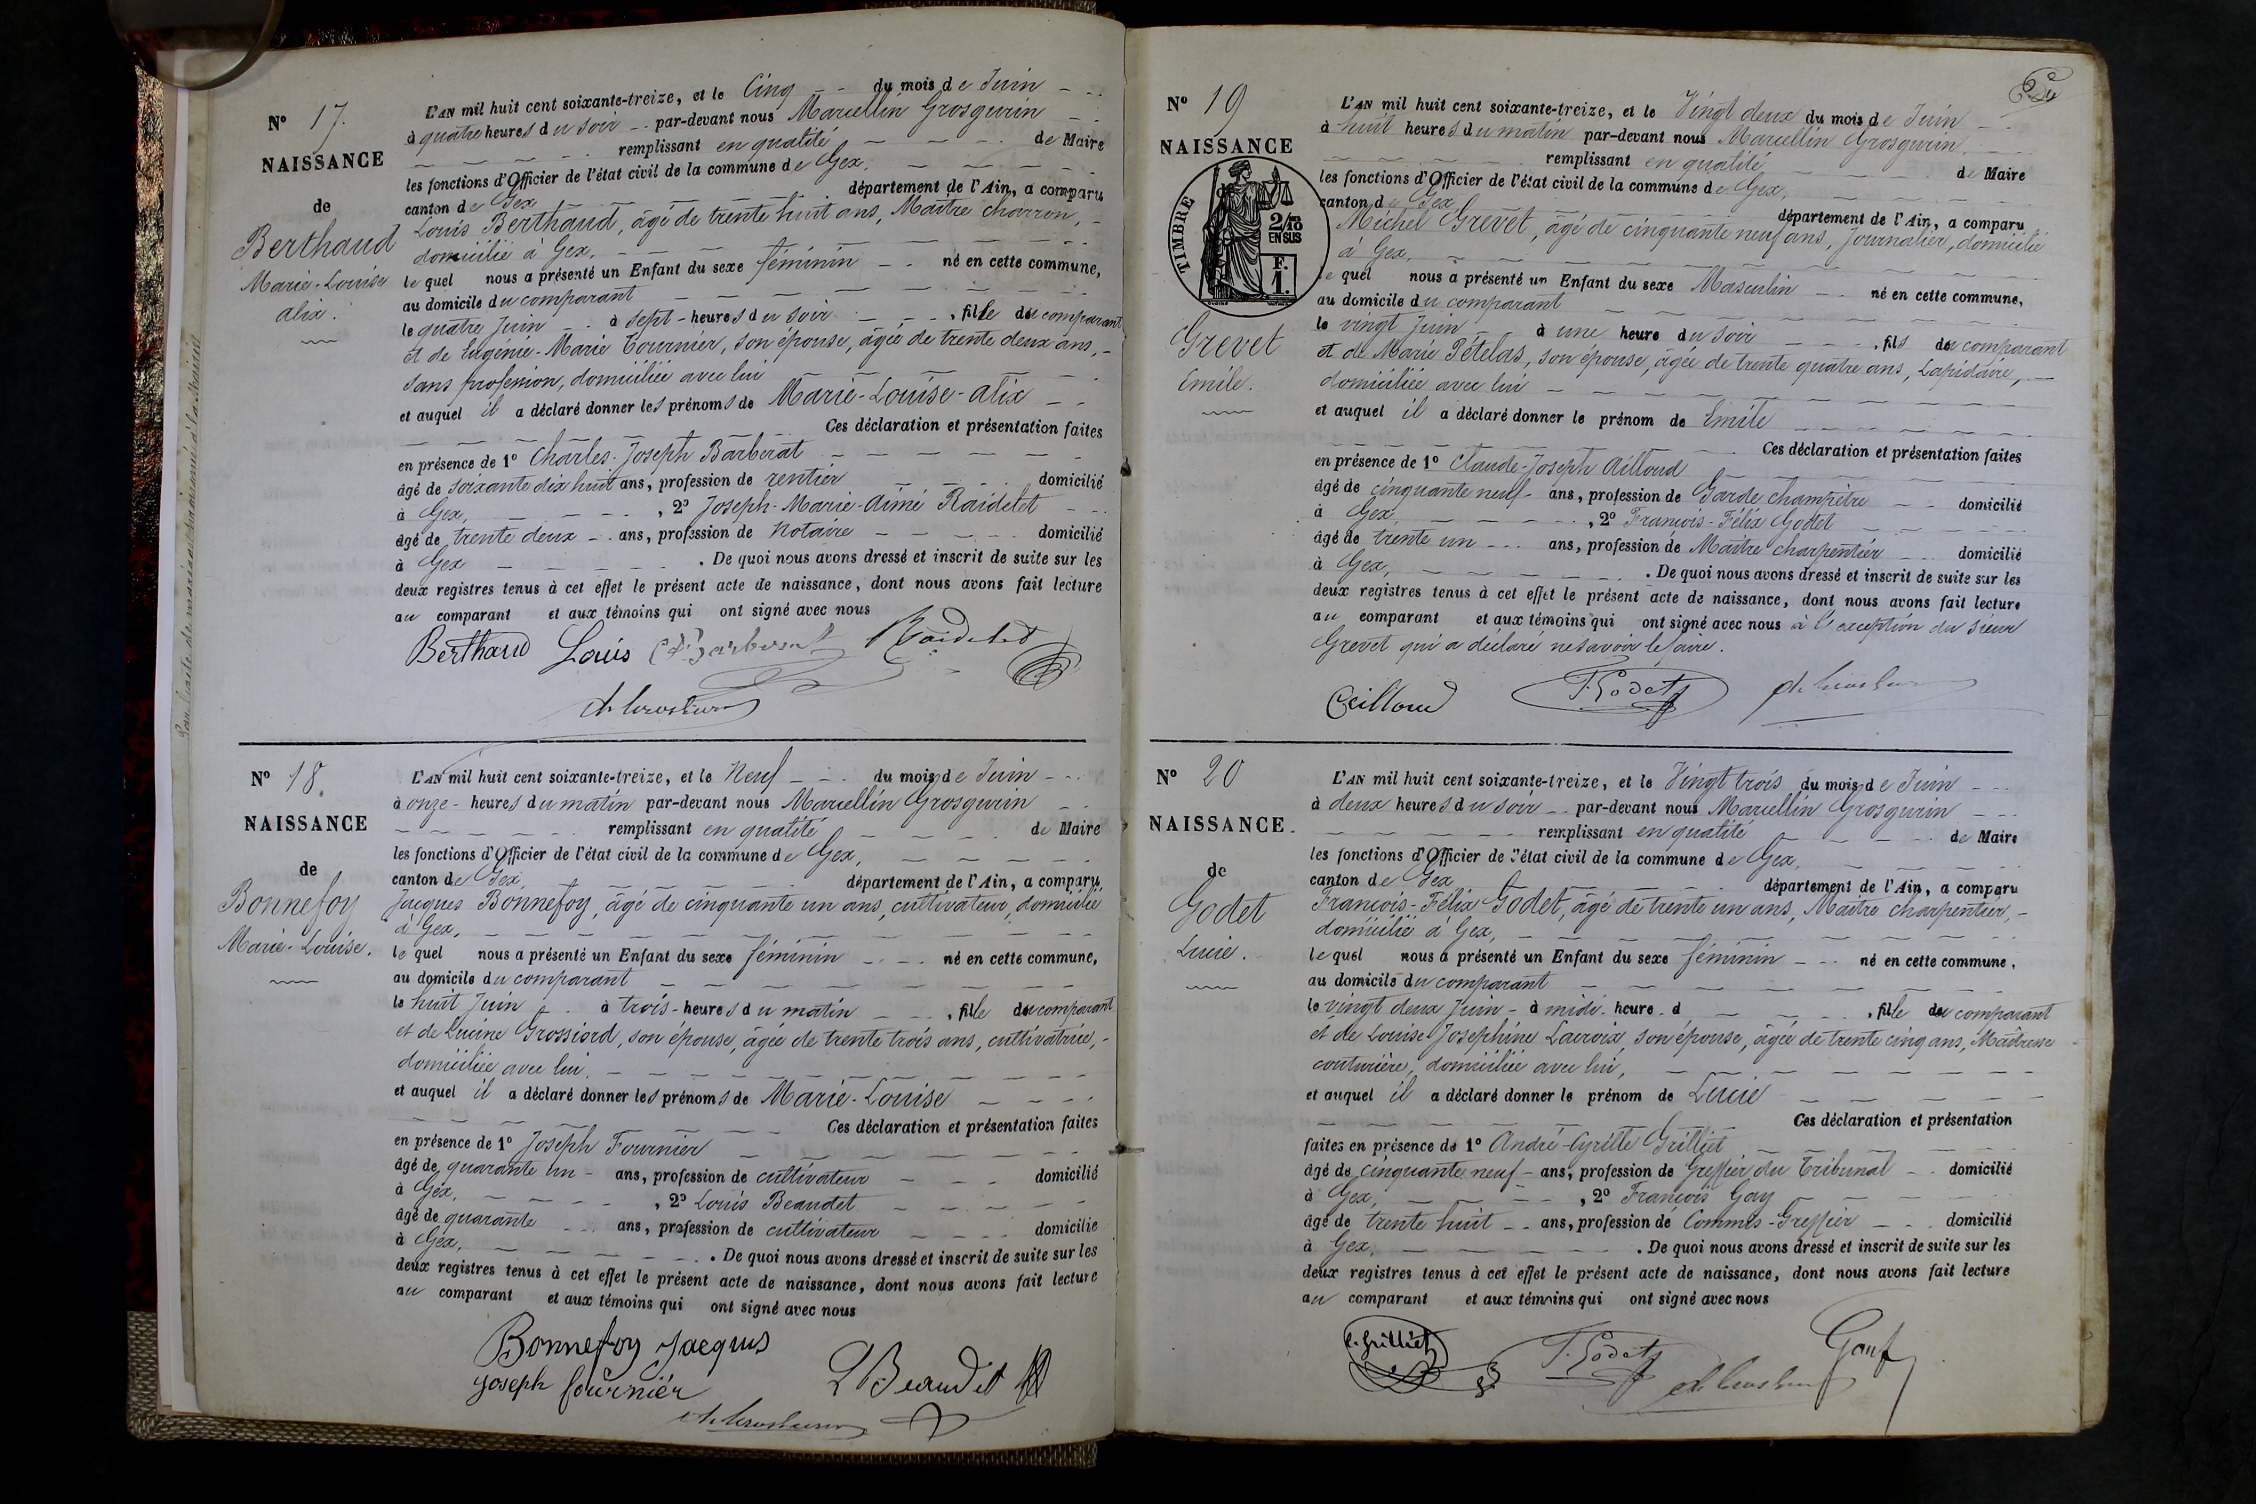 N° 17.
NAISSANCE
de
Berthaud
Marie-Louise
alix.
L'AN mil huit cent soixante-treize, et le Cinq du mois de Juin
à quatre heures du soir par-devant nous Marcellin Grosgurin
remplissant en qualité de Maire
les fonctions d'Officier de l'état civil de la commune de Gex,
canton de Gex département de l'Ain, a comparu
Louis Berthaud, âgé de trente huit ans, Maître charron,
domicilié à Gex,
le quel nous a présenté un Enfant du sexe féminin né en cette commune,
au domicile du comparant
le quatre Juin à sept heures du soir, fille du comparant
et de Eugénie-Marie Tournier, son épouse, âgée de trente deux ans,
sans profession, domiciliée avec lui
et auquel il a déclaré donner les prénoms de Marie-Louise-alix
Ces déclaration et présentation faites
en présence de 1° Charles-Joseph Barberat
âgé de soixante dix huit ans, profession de rentier domicilié
à Gex, , 2° Joseph-Marie-Aimé Raidelet
âgé de trente deux ans, profession de Notaire domicilié
à Gex . De quoi nous avons dressé et inscrit de suite sur les
deux registres tenus à cet effet le présent acte de naissance, dont nous avons fait lecture
au comparant et aux témoins qui ont signé avec nous
Berthaud Louis Barberat Raidelet
N° 18.
NAISSANCE
de
Bonnefoy
Marie-Louise.
L'AN mil huit cent soixante-treize, et le Neuf du mois de Juin
à onze heures du matin par-devant nous Marcellin Grosgurin
remplissant en qualité de Maire
les fonctions d'Officier de l'état civil de la commune de Gex,
canton de Gex, département de l'Ain, a comparu
Jacques Bonnefoy, âgé de cinquante un ans, cultivateur, domicilié
à Gex,
le quel nous a présenté un Enfant du sexe féminin né en cette commune,
au domicile du comparant
le huit Juin à trois heures du matin , fille du comparant
et de Lucine Grossiord, son épouse, âgée de trente trois ans, cultivatrice,
domiciliée avec lui,
et auquel il a déclaré donner les prénoms de Marie-Louise
Ces déclaration et présentation faites
en présence de 1° Joseph Fournier
âgé de quarante un ans, profession de cultivateur domicilié
à Gex, , 2° Louis Beaudet
âgé de quarante ans, profession de cultivateur domicilié
à Gex, . De quoi nous avons dressé et inscrit de suite sur les
deux registres tenus à cet effet le présent acte de naissance, dont nous avons fait lecture
au comparant et aux témoins qui ont signé avec nous
Bonnefoy Jacques
Joseph fournier L Beaudet
N° 19
NAISSANCE
TIMBRE
2/10
EN SUS
F.
1.
Grevet
Emile.
L'AN mil huit cent soixante-treize, et le Vingt deux du mois de Juin
à huit heures du matin par-devant nous Marcellin Grosgurin
remplissant en qualité de Maire
les fonctions d'Officier de l'état civil de la commune de Gex,
canton de Gex département de l'Ain, a comparu
Michel Grevet, âgé de cinquante neuf ans, Journalier, domicilié
à Gex,
le quel nous a présenté un Enfant du sexe Masculin né en cette commune,
au domicile du comparant
le vingt Juin à une heure du soir , fils du comparant
et de Marie Pételas, son épouse, âgée de trente quatre ans, Lapidaire,
domiciliée avec lui
et auquel il a déclaré donner le prénom de Emile
Ces déclaration et présentation faites
en présence de 1° Claude-Joseph Ailloud
âgé de cinquante neuf ans, profession de Garde champêtre domicilié
à Gex , 2° François-Félix Godet
âgé de trente un ans, profession de Maître charpentier domicilié
à Gex, . De quoi nous avons dressé et inscrit de suite sur les
deux registres tenus à cet effet le présent acte de naissance, dont nous avons fait lecture
au comparant et aux témoins qui ont signé avec nous à l'exception du sieur
Grevet qui a déclaré ne savoir le faire.
Ceilloud F. Godet
N° 20
NAISSANCE.
de
Godet
Lucie.
L'AN mil huit cent soixante-treize, et le Vingt trois du mois de Juin
à deux heures du soir par-devant nous Marcellin Grosgurin
remplissant en qualité de Maire
les fonctions d'Officier de l'état civil de la commune de Gex,
canton de Gex département de l'Ain, a comparu
François-Félix Godet, âgé de trente un ans, Maître charpentier,
domicilié à Gex,
le quel nous a présenté un Enfant du sexe féminin né en cette commune,
au domicile du comparant
le vingt deux Juin à midi heure d , fille du comparant
et de Louise Josephine Lacroix, son épouse, âgée de trente cinq ans, Maîtresse
couturière, domiciliée avec lui,
et auquel il a déclaré donner le prénom de Lucie
Ces déclaration et présentation
faites en présence de 1° André-Cyrille Grilliet
âgé de cinquante neuf ans, profession de Greffier du Tribunal domicilié
à Gex, , 2° François Gay
âgé de trente huit ans, profession de Commis-Greffier domicilié
à Gex, . De quoi nous avons dressé et inscrit de suite sur les
deux registres tenus à cet effet le présent acte de naissance, dont nous avons fait lecture
au comparant et aux témoins qui ont signé avec nous
C. Grilliet F. Godet Gay